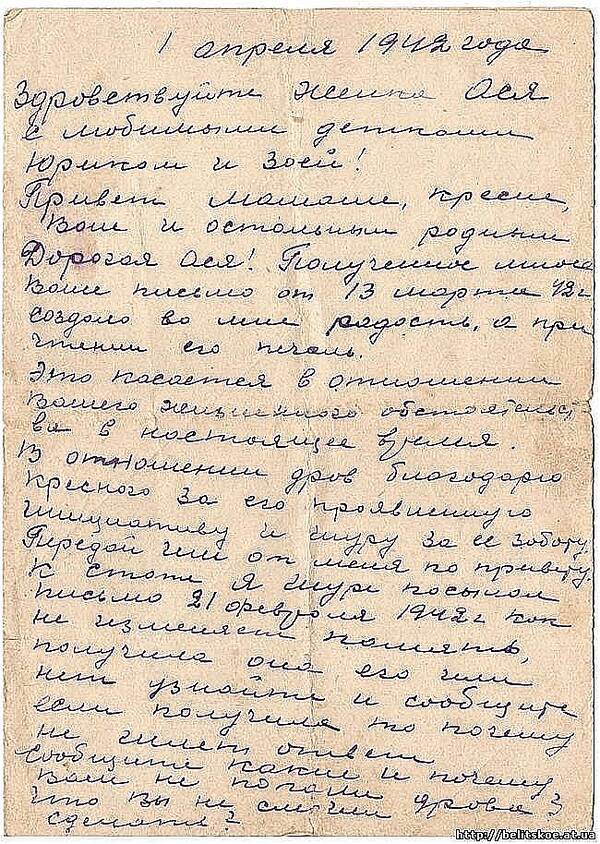 1 апреля 1942 года
Здровствуйте жинка Ася
с любимыми детками
Юриком и Зоей!
Привет мамаше, кресне,
Вам и остальным родным
Дорогая Ася! Полученное мною
Ваше письмо от 13 марта 42 г
создало во мне радость, а при
чтении его печаль.
Это касается в отношении
Вашего жизненного обстоятельст
ва в настоящее время.
В отношении дров благодарю
кресного за его проявленную
инициативу и шуру за ее заботу.
Передай им от меня по привету.
К стати я шуре посылал
письмо 21 февраля 1942 г как
не изменяет память,
получила она его или
нет узнайте и сообщите
если получила то почему
не шлет ответ
Сообщите какие и почему
Вам не дрова
что Вы не смогли
сделать?
http://belitskoe.at.ua